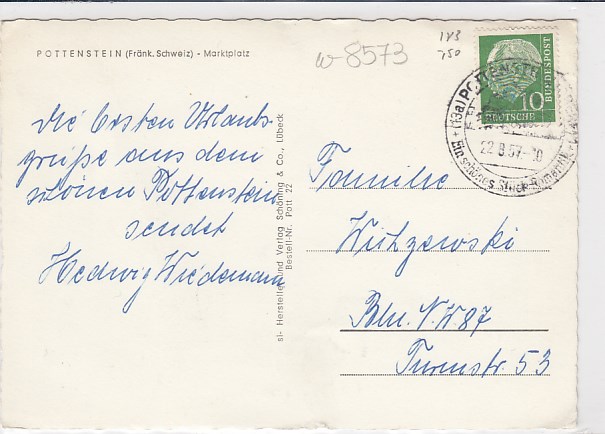 POTTENSTEIN (Fränk. Schweiz) - Marktplatz
w-8573
Die besten Urlaubs-
grüße aus dem
schönen Pottenstein
sendet
Hedwig Wiedemann
Hersteller und Verlag Schöning & Co., Lübeck
Bestell-Nr. Pott 22
DEUTSCHE
BUNDESPOST
10
(13a) POTTENSTEIN
22.8.57-10
Ein schönes Stück Romantik
Familie
Witzgewski
Bln. N.W 87
Turmstr. 53